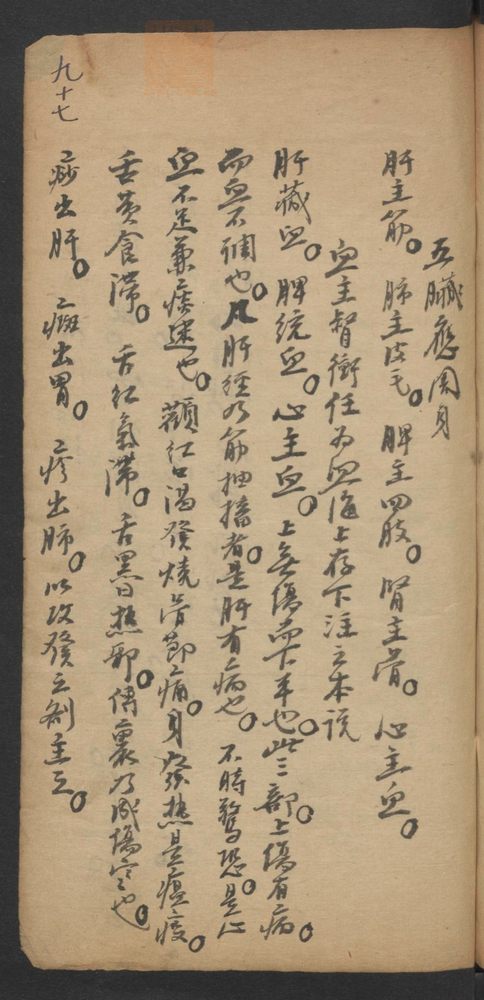 九十七
五臟應周身
肝主筋。肺主皮毛。脾主四肢。腎主骨。心主血。
血主督衝任为血海上存下注之本说
肝藏血。脾統血。心主血。上無傷而下平也。此三部上傷有病。
而血不调也。凡肝經为筋抽搐者。是肝有病也。不時驚恐。是心
血不足兼痰迷也。顴红口渴發燒骨節痛。身發热是瘟疫。
舌黄食滞。舌红氣滞。舌黑日热郁。傳裏乃成傷寒也。
痧出肝。斑出胃。疹出肺。以攻發之劑主之。